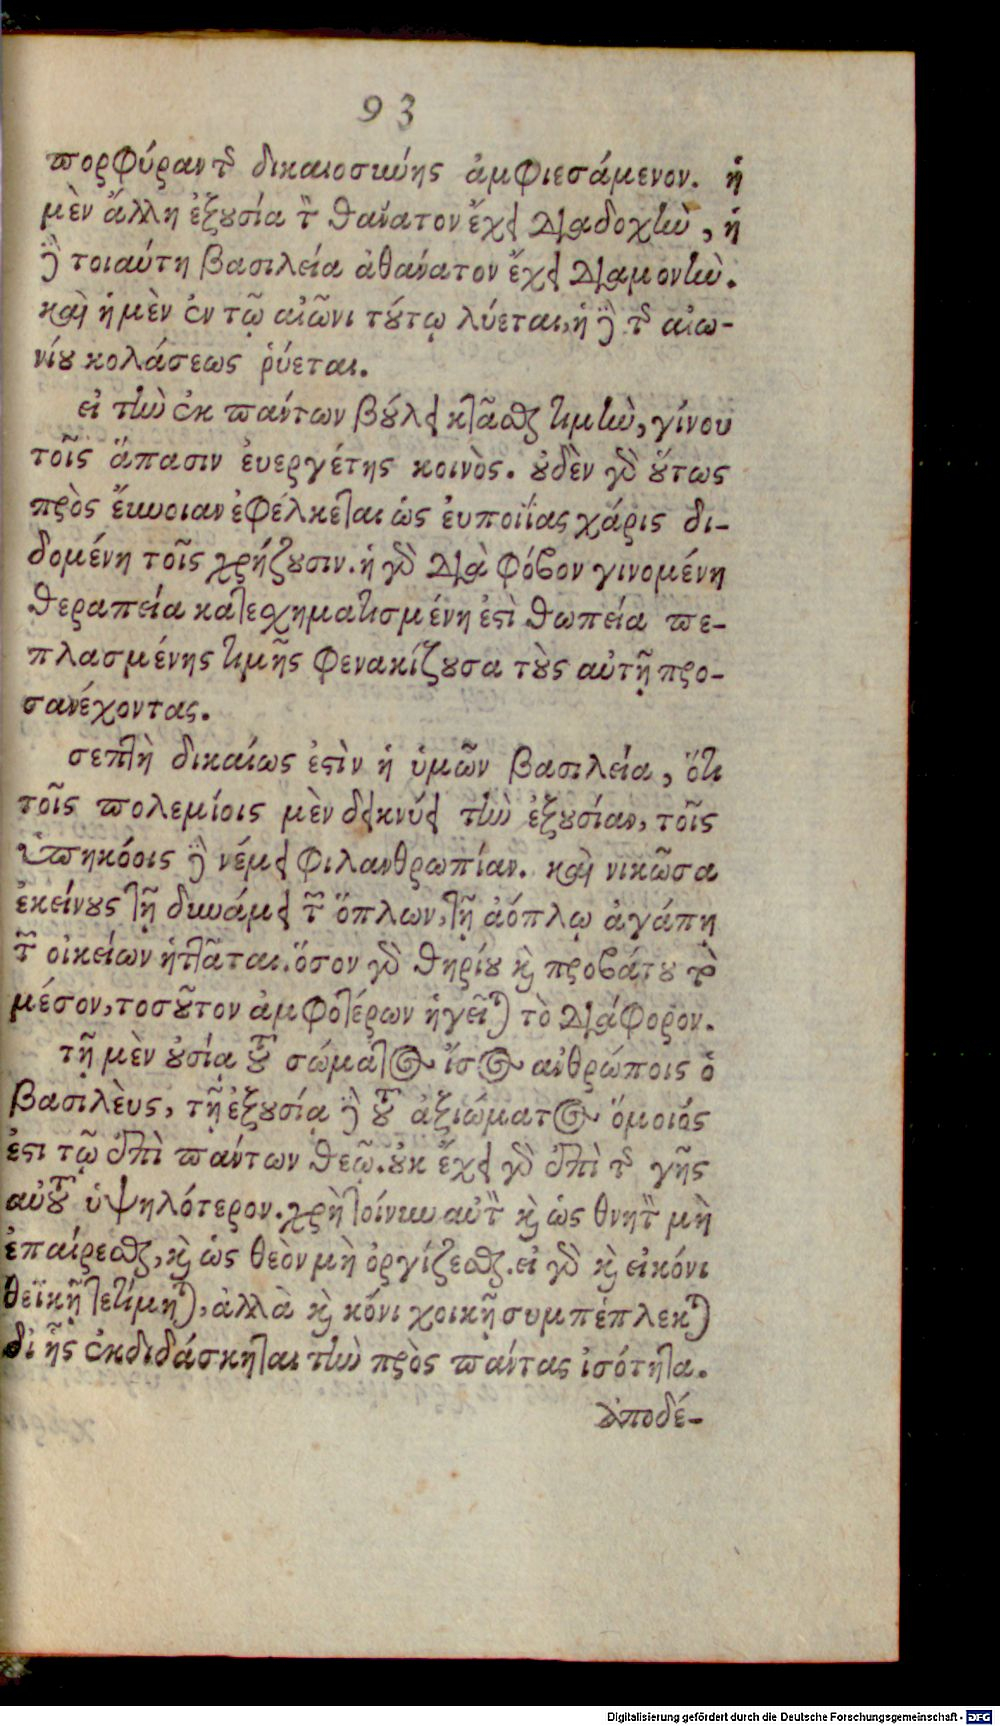 93
πορφύραν τ῀ δικαιοσύνης ἀμφιεσάμενον. ἡ
μὲν ἄλλη ἐξουσία τ῀ θάνατον ἔχει διαδοχὴν, ἡ
δὲ τοιαύτη βασιλεία ἀθάνατον ἔχει διαμονὴν.
καὶ ἡ μὲν ἐν τῷ αἰῶνι τούτῳ λύεται, ἡ δὲ τ῀ αἰω-
νίου κολάσεως ῥύεται.
εἰ τὴν ἐκ πάντων βούλει κτᾶσθαι τιμὴν, γίνου
τοῖς ἅπασιν ἐυεργέτης κοινὸς. οὐδὲν γὰρ οὕτως
πρὸς ἔυνοιαν ἐφέλκεται ὡς ἐυποιΐας χάρις δι-
δομένη τοῖς χρήζουσιν. ἡ γὰρ διὰ φόβον γινομένη
θεραπεία κατεσχηματισμένη ἐστὶ θωπεία πε-
πλασμένης τιμῆς φενακίζουσα τοὺς αὐτῇ προ-
σανέχοντας.
σεπτὴ δικαίως ἐστὶν ἡ ὑμῶν βασιλεία, ὅτι
τοῖς πολεμίοις μὲν δεικνύει τὴν ἐξουσίαν, τοῖς
ὑπηκόοις δὲ νέμει φιλανθρωπίαν. καὶ νικῶσα
ἐκείνους τῇ δυνάμει τ῀ ὅπλων, τῇ ἀόπλῳ ἀγάπῃ
τ῀ οἰκείων ἡττᾶται. ὅσον γὰρ θηρίου καὶ προβάτου τὸ
μέσον, τοσοῦτον ἀμφοτέρων ἡγεῖται τὸ διάφορον.
τῇ μὲν οὐσίᾳ τοῦ σώματος ἴσος ἀνθρώποις ὁ
βασιλὲυς, τῇ ἐξουσίᾳ δὲ τοῦ ἀξιώματος ὅμοιός
ἐστι τῷ ἐπὶ πάντων θεῷ. οὐκ ἔχει γὰρ ἐπὶ τ῀ γῆς
αὐτοῦ ὑψηλότερον. χρὴ τοίνυν αὐτ῀ καὶ ὡς θνητ῀ μὴ
ἐπαίρεσθαι, καὶ ὡς θεὸν μὴ ὀργίζεσθαι. εἰ γὰρ καὶ εἰκόνι
θεϊκῇ τετίμηται, ἀλλὰ καὶ κόνι χοικῇ συμπέπλεκται
δἰ ἧς ἐκδιδάσκηται τὴν πρὸς πάντας ἰσότητα.
ἀποδέ-
Digitalisierung gefördert durch die Deutsche Forschungsgemeinschaft - DFG